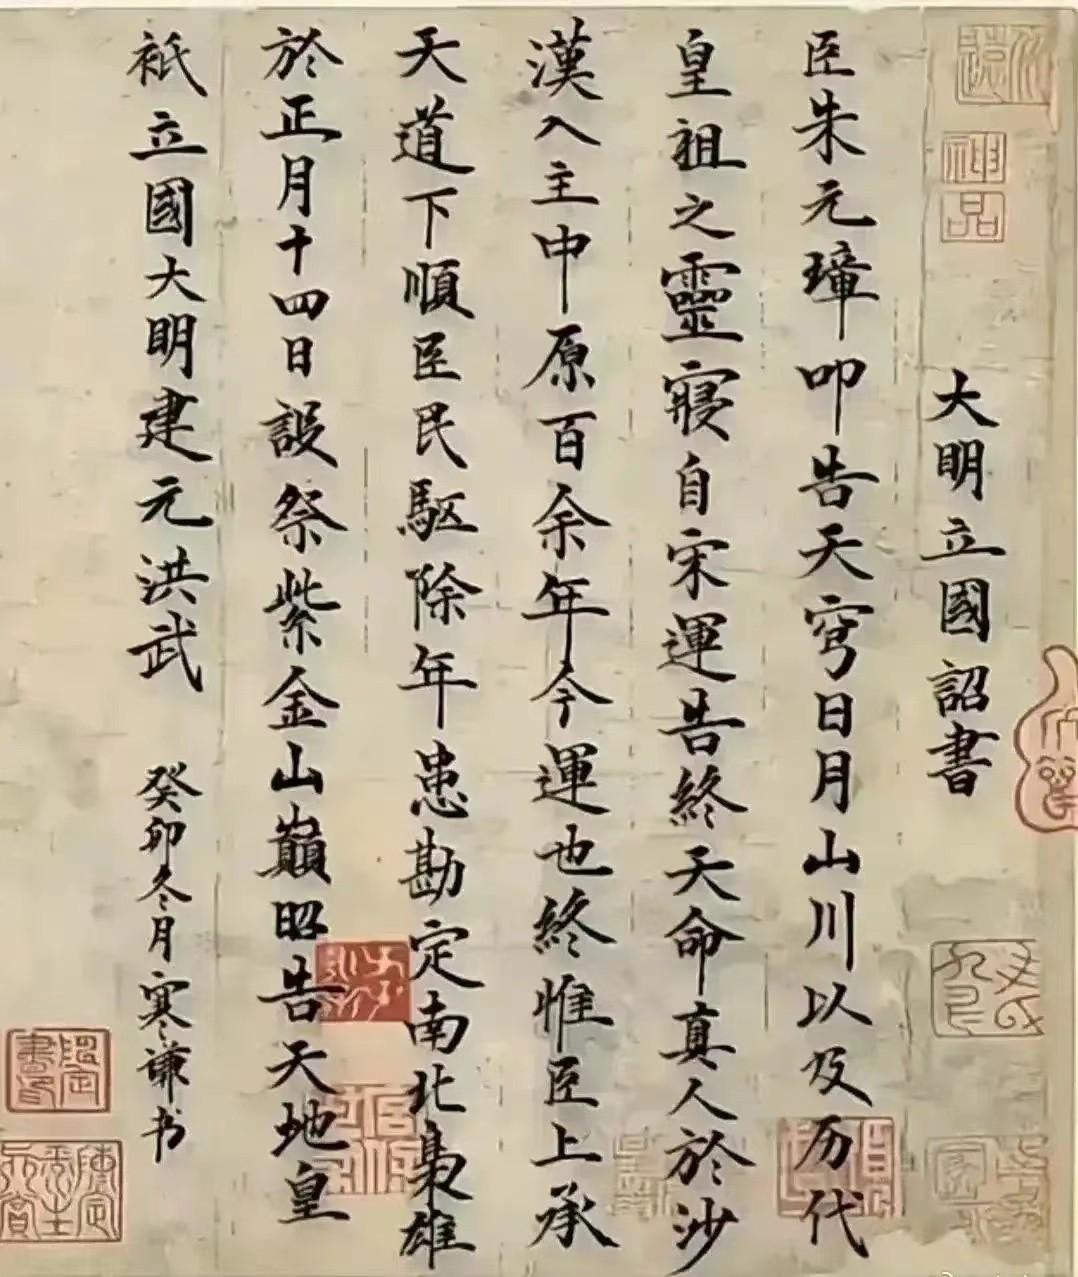 神品
大明立國詔書
臣朱元璋叩告天穹日月山川以及历代
皇祖之靈寢自宋運告終天命真人於沙
漢入主中原百余年今運也終惟臣上承
天道下順臣民駆除年患勘定南北梟雄
於正月十四日設祭紫金山巔昭告天地皇
祇立國大明建元洪武
癸卯冬月寒谦书